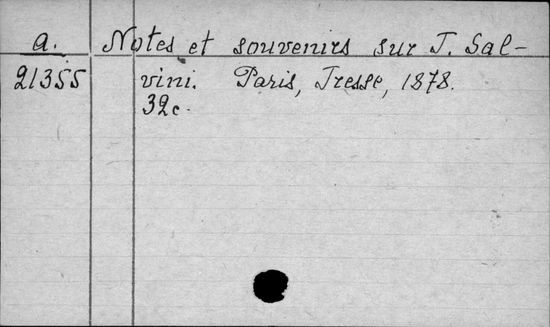 a. Notes et souvenirs sur T. Sal-
21355 vini. Paris, Tresse, 1878.
32c.